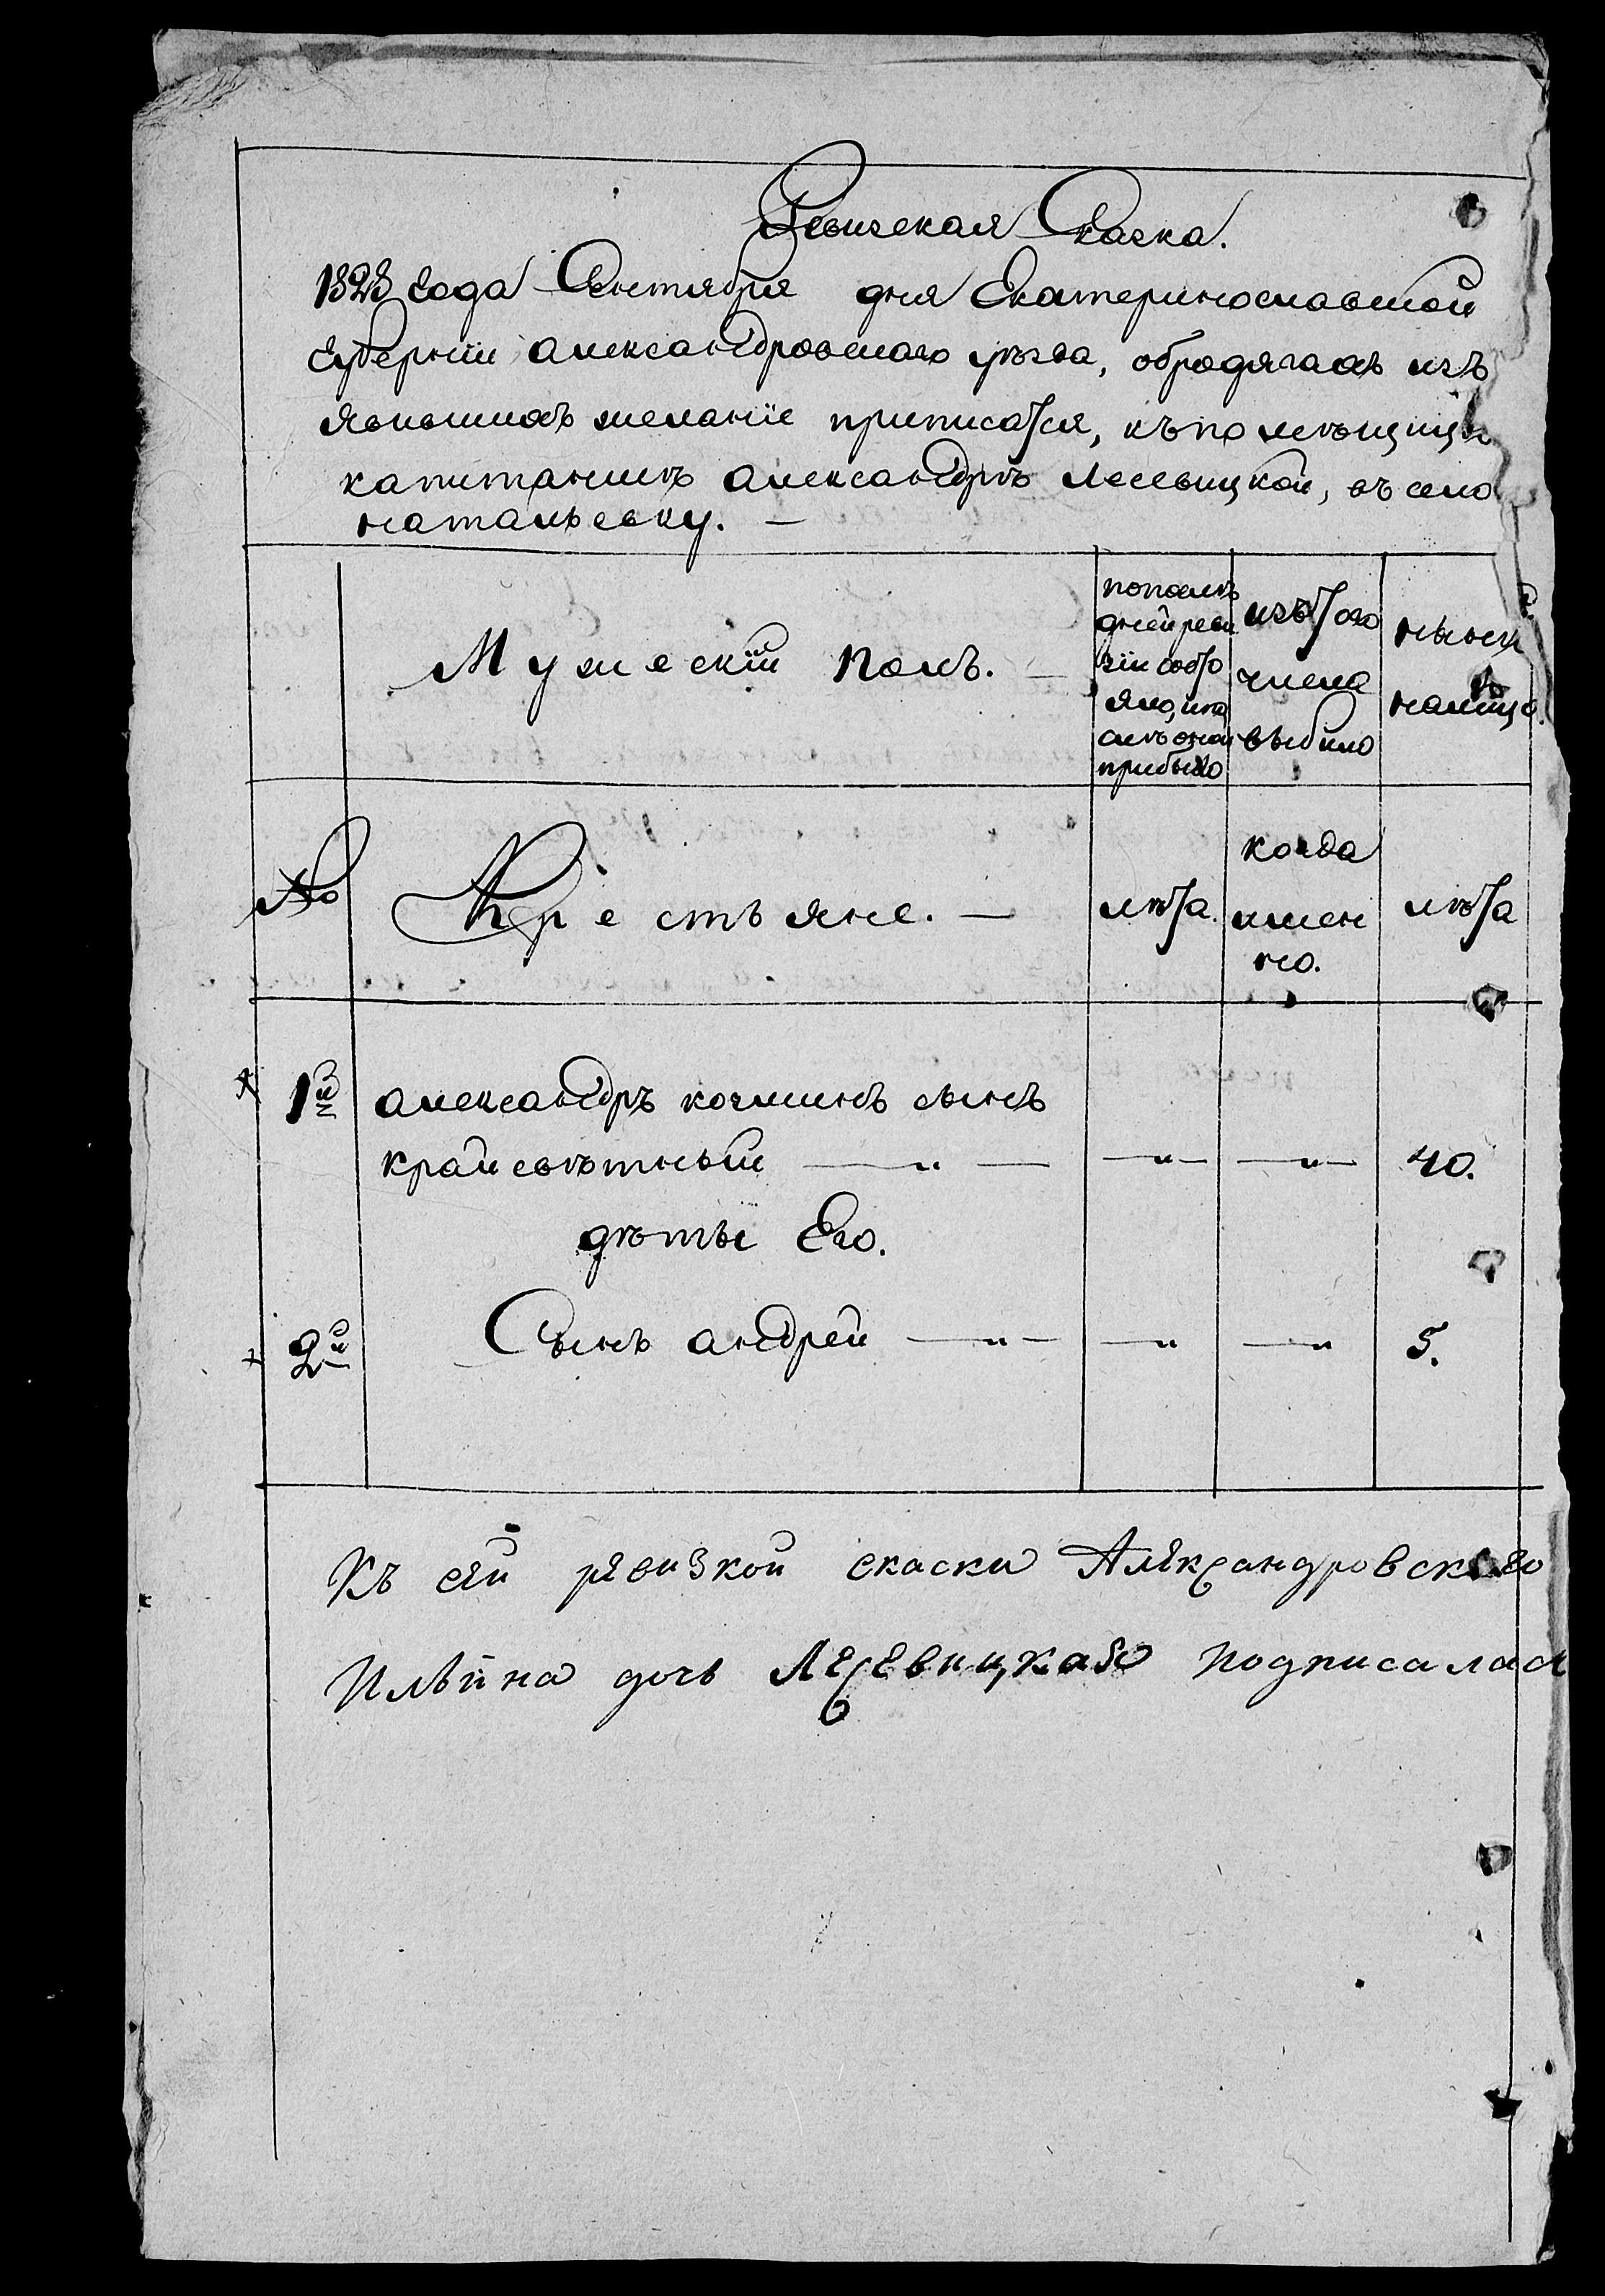 Ревизская Скаска.
1823 года Сентября дня Екатеринославской
губернiи александровскаго уѣзда, обродягахъ изъ
явившихъ желанiе приписатся, къ помѣщицѣ
капитаншѣ александрѣ лесевицкой, въ село
натальевку. —
Мужескiй полъ. —
попослѣ
дней реви
зiи состо
яло, ипо
слѣ оной
прибыло
изъ того
числа
выбыло
нынѣ
налицо
№
Крестьяне. —
лѣта.
когда
имен
но.
лѣта
1й
александръ козминъ сынъ
крайсвѣтный — „ — — „ — — „ — 40.
дѣти Его.
2й
Сынъ андрей — „ — — „ — „ 5.
Къ сей ревизкой скаски Александровского
Ильина дочь Лесевицкая подписалася